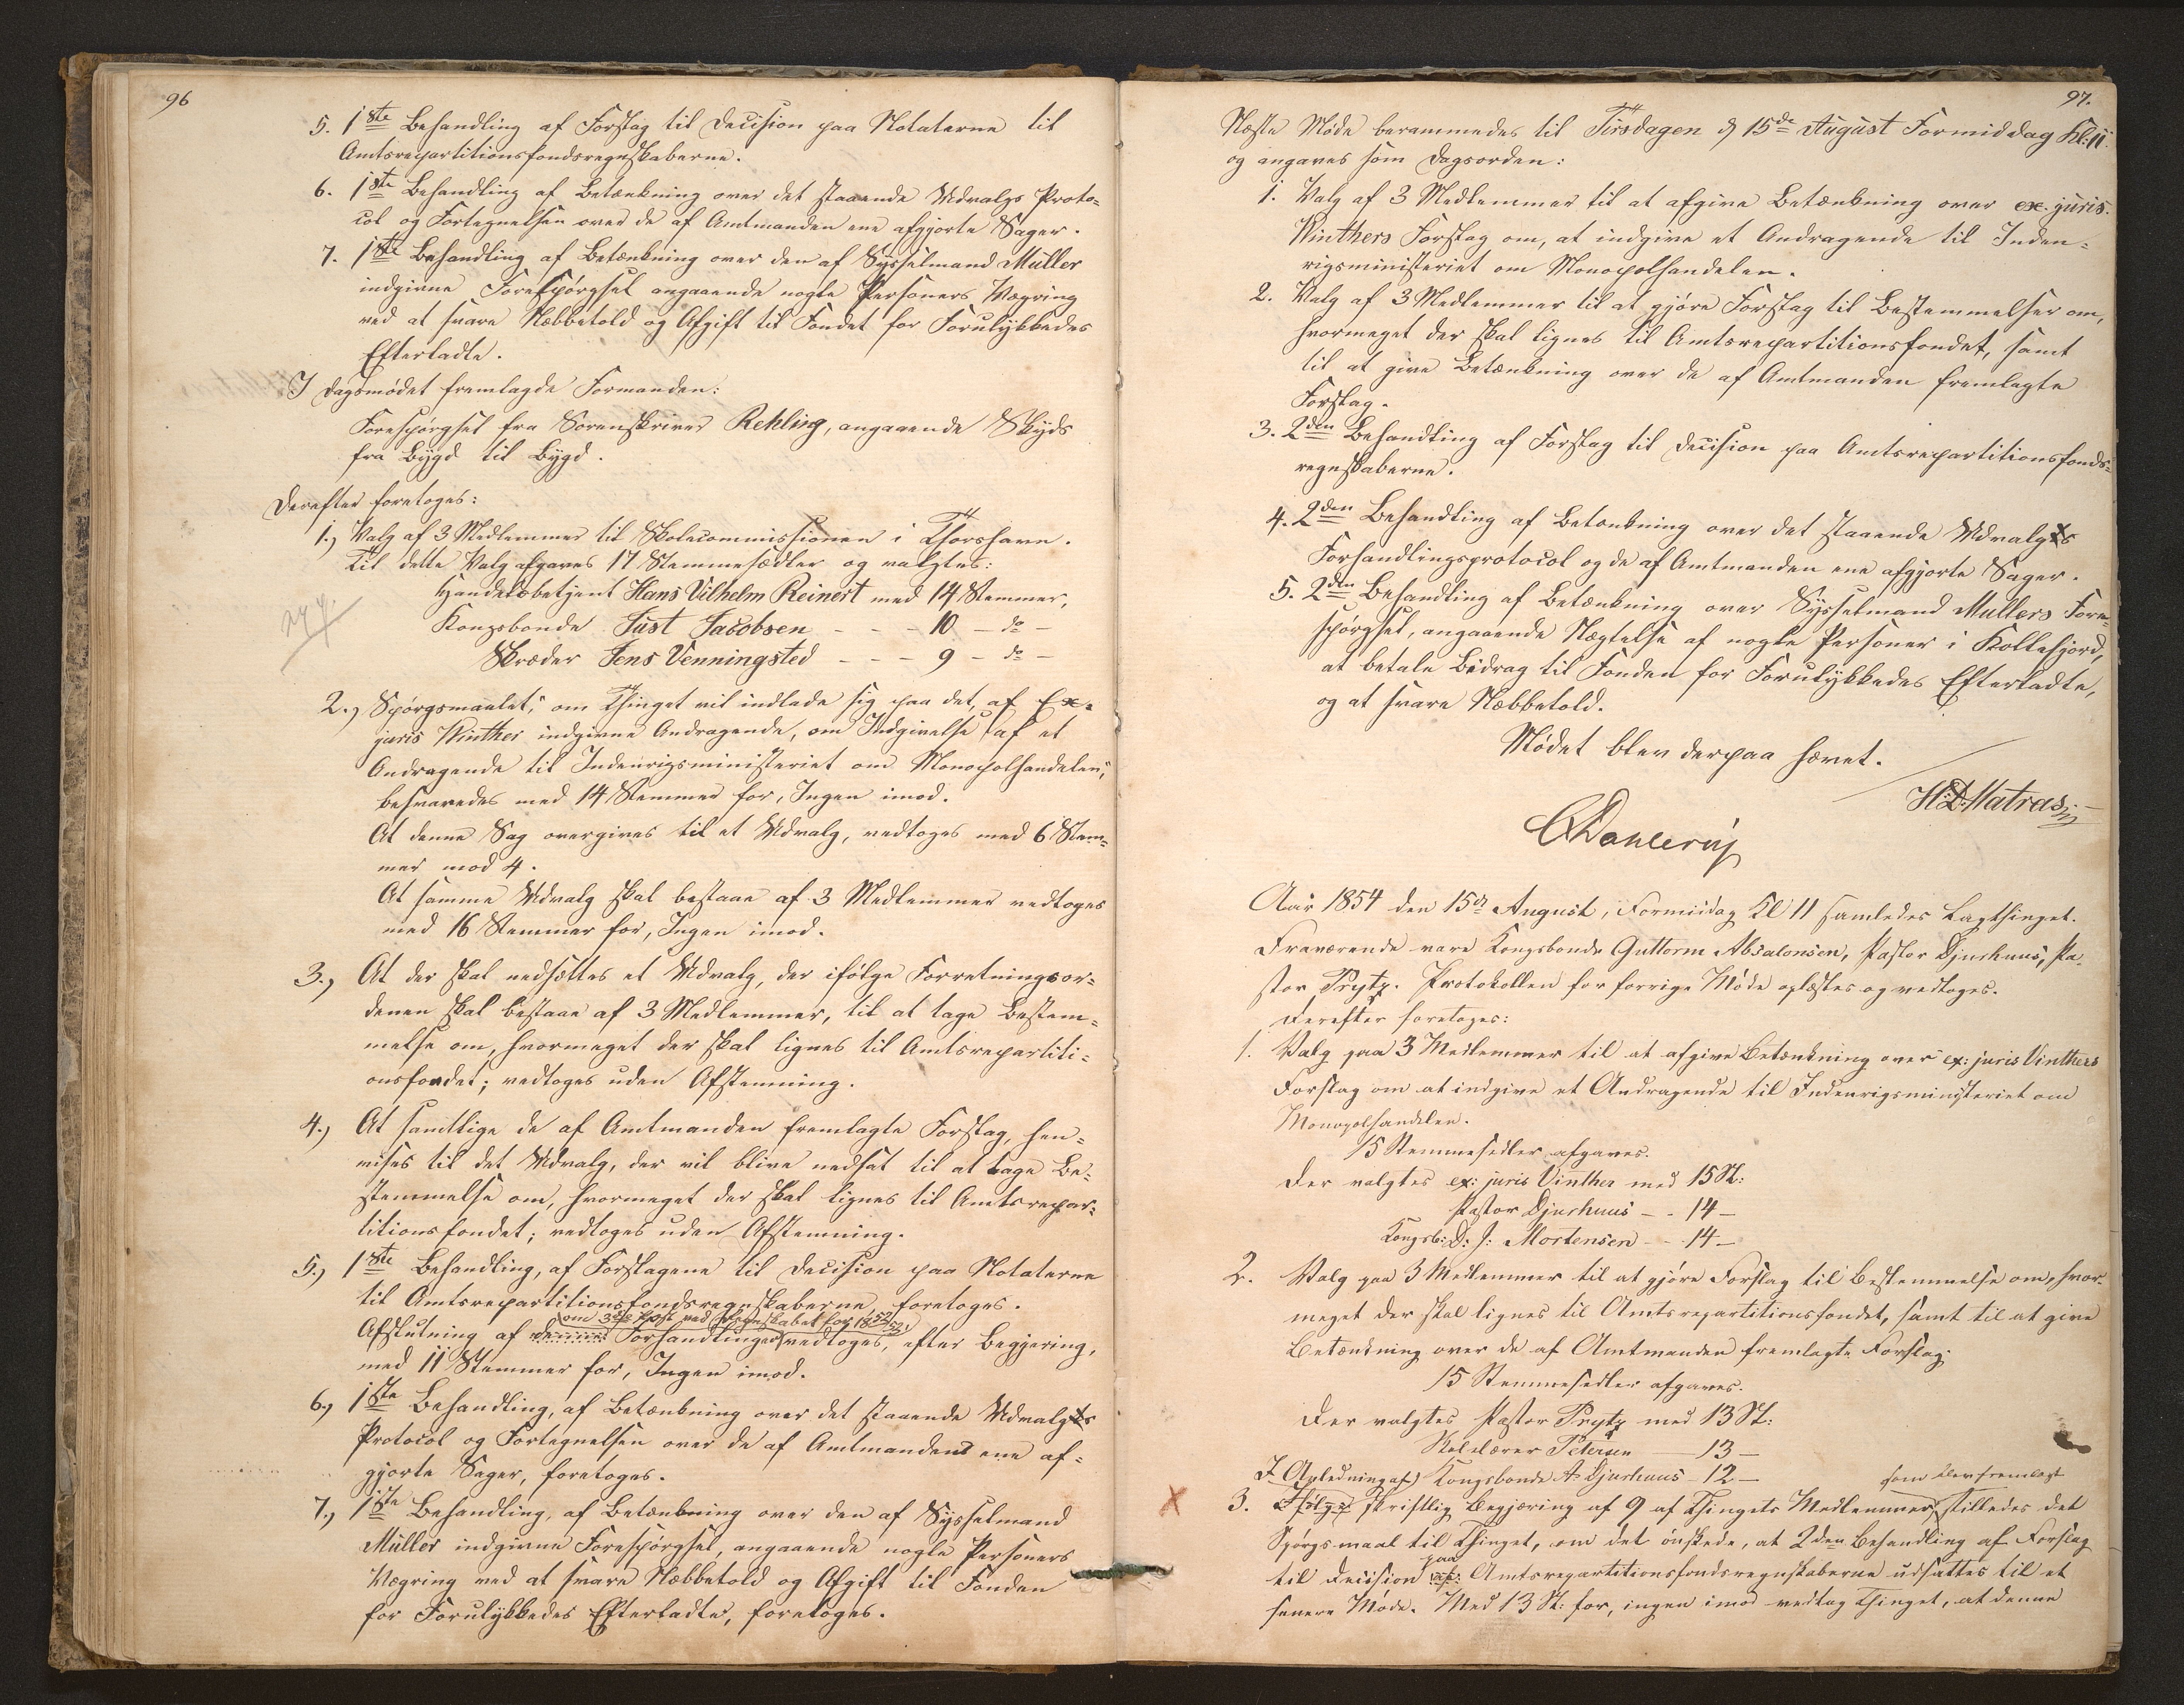 96
5. 1ste Behandling af Forslag til Decision paa Notaterne til
Amtsrepartitionsfondsregnskaberne.
6. 1ste Behandling af Betænkning over det staaende Udvalgs Proto-
col og Fortegnelsen over de af Amtmanden ene afgjorte Sager.
7. 1ste Behandling af Betænkning over den af Sysselmand Müller
indgivne Forespörgsel angaaende nogle Personers Vægring
ved at svare Næbbetold og Afgift til Fondet for Forulykkedes
Efterladte.
I Dagsmödet fremlagde Formanden:
Forespörgsel fra Sorenskriver Rehling, angaaende Skyds
fra Bygd til Bygd.
Derefter foretoges:
1.) Valg af 3 Medlemmer til Skolecommissionen i Thorshavn.
Til dette Valg afgaves 17 Stemmesedler og valgtes:
Handelsbetjent Hans Vilhelm Reinert med 14 Stemmer,
Kongsbonde Just Jacobsen - - - 10 - do -
Skræder Jens Venningsted - - - 9 - do -
2.) Spörgsmaalet, "om Thinget vil indlade sig paa det, af Ex-
juris Winther indgivne Andragende, om Indgivelse af et
Andragende til Indenrigsministeriet om Monopolhandelen",
besvaredes med 14 Stemmer for, Ingen imod.
At denne Sag overgives til et Udvalg, vedtoges med 6 Stem-
mer mod 4.
At samme Udvalg skal bestaae af 3 Medlemmer vedtoges
med 16 Stemmer for, Ingen imod.
3.) At der skal nedsættes et Udvalg, der ifölge Forretningsor-
denen skal bestaae af 3 Medlemmer, til at tage Bestem-
melse om, hvormeget der skal lignes til Amtsrepartiti-
onsfondet; vedtoges uden Afstemning.
4.) At samtlige de af Amtmanden fremlagte Forslag, hen-
vises til det Udvalg, der vil blive nedsat til at tage Be-
stemmelse om, hvormeget der skal lignes til Amtsrepar-
titionsfondet; vedtoges uden Afstemning.
5.) 1ste Behandling, af Forslagene til Decision paa Notaterne
til Amtsrepartitionsfondsregnskaberne, foretoges.
om 3die Post ved Regnskabet for 1852/53
Afslutning af Forhandlingen vedtoges, efter Begjering,
med 11 Stemmer for, Ingen imod.
6.) 1ste Behandling, af Betænkning over det staaende Udvalgs
Protocol og Fortegnelsen over de af Amtmanden ene af-
gjorte Sager, foretoges.
7.) 1ste Behandling, af Betænkning over den af Sysselmand
Müller indgivne Forespörgsel, angaaende nogle Personers
Vægring ved at svare Næbbetold og Afgift til Fonden
for Forulykkedes Efterladte, foretoges.
97.
Næste Möde berammedes til Tirsdagen d 15de August Formiddag Kl. 11
og angaves som Dagsorden:
1. Valg af 3 Medlemmer til at afgive Betænkning over ex. juris.
Winthers Forslag om, at indgive et Andragende til Inden-
rigsministeriet om Monopolhandelen.
2. Valg af 3 Medlemmer til at gjöre Forslag til Bestemmelser om,
hvormeget der skal lignes til Amtsrepartitionsfondet, samt
til at give Betænkning over de af Amtmanden fremlagte
Forslag.
3. 2den Behandling af Forslag til Decision paa Amtsrepartitionsfonds-
regnskaberne.
4. 2den Behandling af Betænkning over det staaende Udvalgs
Forhandlingsprotocol og de af Amtmanden ene afgjorte Sager.
5. 2den Behandling af Betænkning over Sysselmand Müllers Fore-
spörgsel, angaaende Nægtelse af nogle Personer i Kollefjord,
at betale Bidrag til Fonden for Forulykkedes Efterladte,
og at svare Næbbetold.
Mödet blev derpaa hævet.
H.D. Matras
CDahlerup
Aar 1854 den 15de August, Formiddag Kl 11 samledes Lagthinget.
Fraværende vare Kongsbonde Guttorm Absalonsen, Pastor Djurhuus, Pa-
stor Prytz. Protokollen for forrige Möde oplæstes og vedtoges.
Derefter foretoges:
1. Valg paa 3 Medlemmer til at afgive Betænkning over ex: juris Vinthers
Forslag om at indgive et Andragende til Indenrigsministeriet om
Monopolhandelen.
15 Stemmesedler afgaves.
Der valgtes ex: juris Vinther med 15 St:
Pastor Djurhuus - - 14 -
Kongsb: D: J: Mortensen - - 14 -
2. Valg paa 3 Medlemmer til at gjöre Forslag til Bestemmelse om, hvor-
meget der skal lignes til Amtsrepartitionsfondet, samt til at give
Betænkning over de af Amtmanden fremlagte Forslag.
15 Stemmesedler afgaves.
Der valgtes Pastor Prytz med 13 St:
Skolelærer Petersen - 13 -
Kongsbonde A Djurhuus - 12 -
I Anledning af
som blev fremlagt
3. Ifölge skriftlig Begjæring af 9 af Thingets Medlemmer, stilledes det
Spörgsmaal til Thinget, om det önskede, at 2den Behandling af Forslag
til Decision paa Amtsrepartitionsfondsregnskaberne udsattes til et
senere Möde. Med 13 St: for, ingen imod vedtog Thinget, at denne